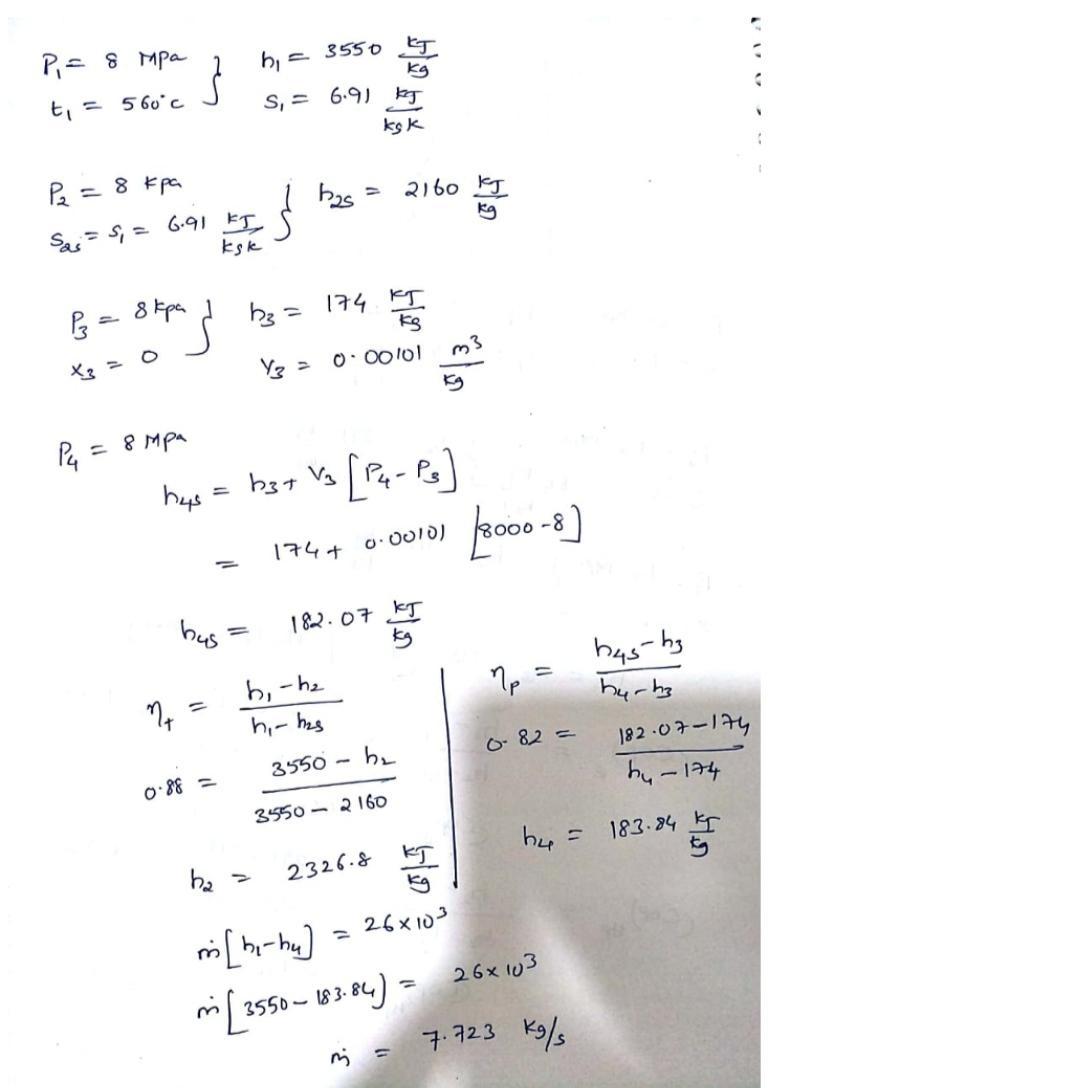 P₁ = 8 MPa } h₁ = 3550 kJ/kg
t₁ = 560°c S₁ = 6.91 kJ/kgK
P₂ = 8 kPa } h₂s = 2160 kJ/kg
S₂s = S₁ = 6.91 kJ/kgK
P₃ = 8 kPa } h₃ = 174 kJ/kg
x₃ = 0 V₃ = 0.00101 m³/kg
P₄ = 8 MPa
h₄s = h₃ + V₃ [P₄ - P₃]
= 174 + 0.00101 [8000 - 8]
h₄s = 182.07 kJ/kg
η_t = (h₁ - h₂)/(h₁ - h₂s)
0.88 = (3550 - h₂)/(3550 - 2160)
h₂ = 2326.8 kJ/kg
η_p = (h₄s - h₃)/(h₄ - h₃)
0.82 = (182.07 - 174)/(h₄ - 174)
h₄ = 183.84 kJ/kg
ṁ [h₁ - h₄] = 26 × 10³
ṁ [3550 - 183.84] = 26 × 10³
ṁ = 7.723 kg/s